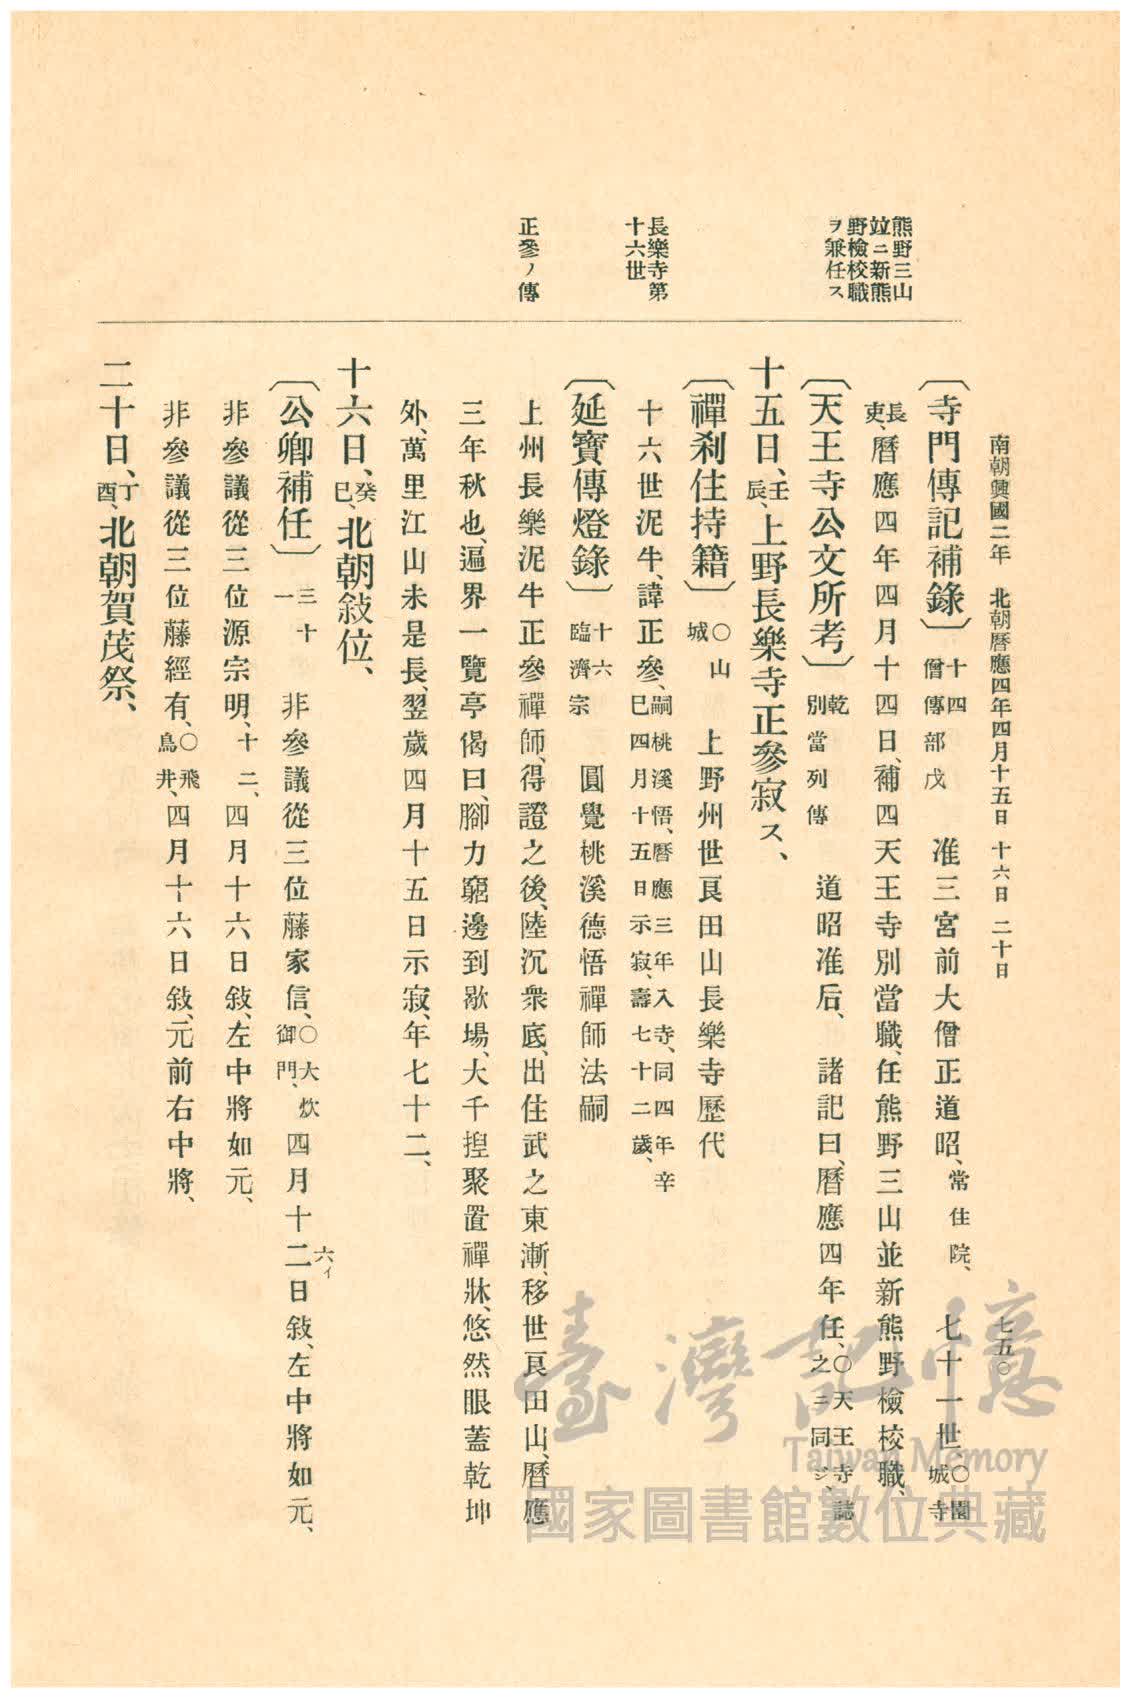 南朝興國二年　北朝曆應四年四月十五日　十六日　二十日
七五〇
熊野三山
竝ニ新熊
野檢校職
ヲ兼任ス
長樂寺第
十六世
正參ノ傳
〔寺門傳記補錄〕十四僧傳部戊　准三宮前大僧正道昭、常住院、七十一世、〇園城寺
長吏、曆應四年四月十四日、補四天王寺別當職、任熊野三山並新熊野檢校職、
〔天王寺公文所考〕乾別當列傳　道昭准后、　諸記曰、曆應四年任、〇天王寺誌之ニ同ジ、
十五日、壬辰、上野長樂寺正參寂ス、
〔禪刹住持籍〕〇山城　上野州世良田山長樂寺歷代
十六世泥牛、諱正參、嗣桃溪悟、曆應三年入寺、同四年辛巳四月十五日示寂、壽七十二歲、
〔延寶傳燈錄〕十六臨濟宗　圓覺桃溪德悟禪師法嗣
上州長樂泥牛正參禪師、得證之後、陸沉衆底、出住武之東漸、移世良田山、曆應
三年秋也、遍界一覽亭偈曰、腳力窮邊到歇場、大千揑聚置禪牀、悠然眼蓋乾坤
外、萬里江山未是長、翌歲四月十五日示寂、年七十二、
十六日、癸巳、北朝敍位、
〔公卿補任〕三十一　非參議從三位藤家信、〇大炊御門、四月十二六イ日敍、左中將如元、
非參議從三位源宗明、十二、四月十六日敍、左中將如元、
非參議從三位藤經有、〇飛鳥井、四月十六日敍、元前右中將、
二十日、丁酉、北朝賀茂祭、
臺灣記憶
Taiwan Memory
國家圖書館數位典藏